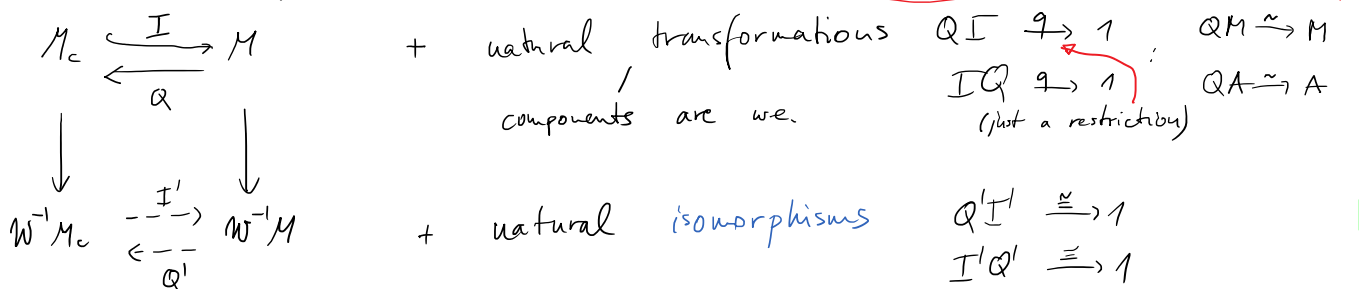 M_c ⇄ M (I, Q) + natural transformations QI ⇒^q 1 : QM ⥲ M
components are w.e. IQ ⇒^q 1 QA ⥲ A
(just a restriction)
W⁻¹M_c ⇄ W⁻¹M (I', Q') + natural isomorphisms Q'I' ⇒^≅ 1
I'Q' ⇒^≅ 1